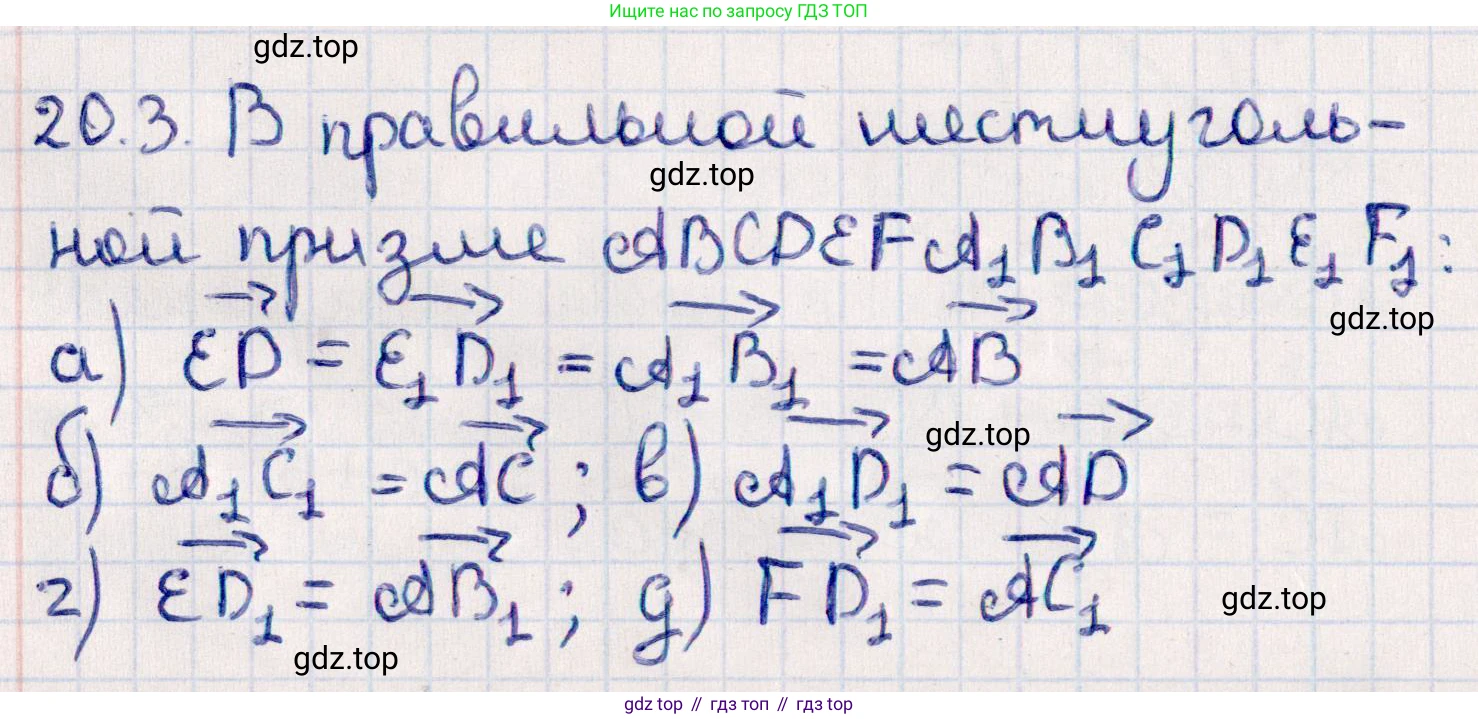 Ищите нас по запросу ГДЗ ТОП
gdz.top
20.3. В правильной шестиуголь-
gdz.top
ной призме ABCDEFA₁B₁C₁D₁E₁F₁:
gdz.top
а) →ED = →E₁D₁ = →A₁B₁ = →AB
gdz.top
б) →A₁C₁ = →AC; в) →A₁D₁ = →AD
г) →ED₁ = →AB₁; д) →FD₁ = →AC₁
gdz.top
gdz.top
gdz top // гдз топ // гдз top